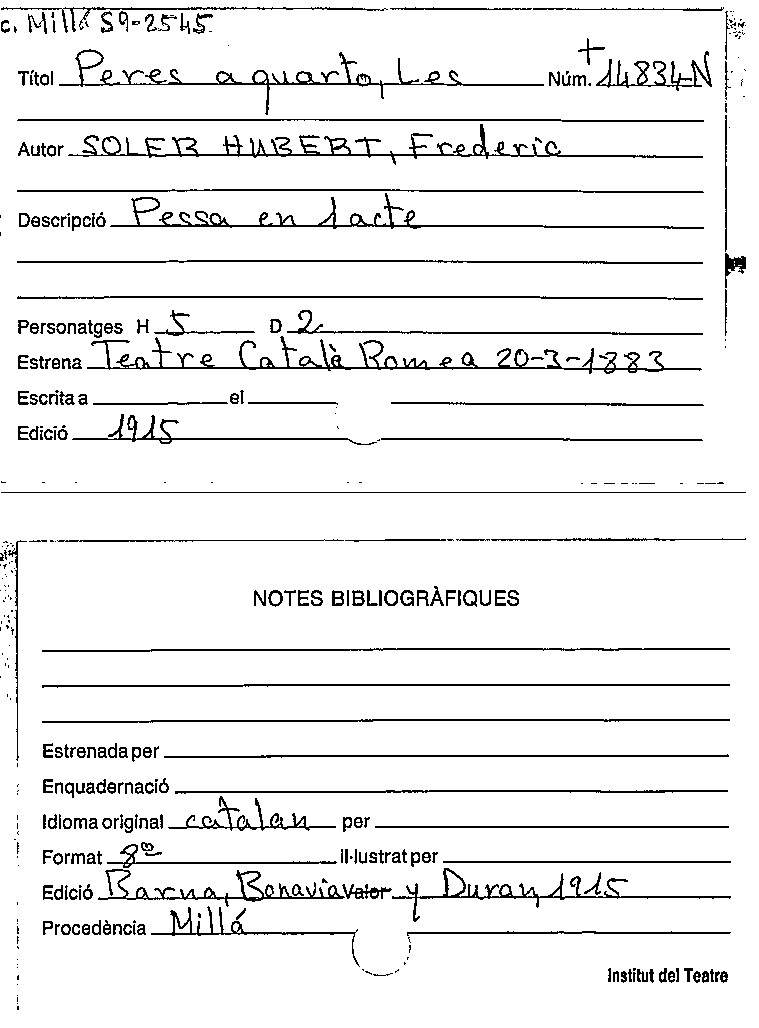 c. Millá S9-2545
Títol Peres a quarto, Les Núm. 14834-N
Autor SOLER HUBERT, Frederic
Descripció Pessa en 1 acte
Personatges H 5 D 2
Estrena Teatre Català Romea 20-3-1883
Escrita a el
Edició 1915
NOTES BIBLIOGRÀFIQUES
Estrenada per
Enquadernació
Idioma original catalan per
Format 8º il·lustrat per
Edició Barna, Bonavia Valor y Duran, 1915
Procedència Millá
Institut del Teatre